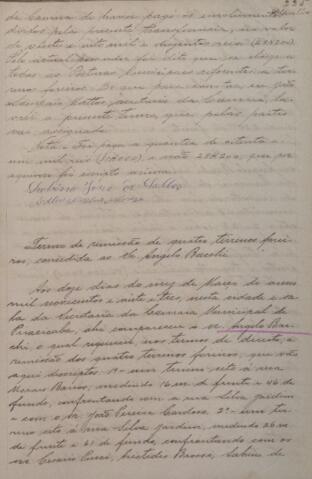 da Camara de haver pago os emolumentos
devidos pela presente transferencia, no valor
de vinte e oito mil e duzentos reis (28$200).
Pelo actual possuidor foi dito que se obriga a
todas as Posturas municipaes referentes a ter-
renos foreiros. Do que para constar, eu
secretario da Camara, la-
vrei o presente termo, que pelas partes
vae assignado.
Nota = Foi paga a quantia de oitenta e
um mil reis (81$000) e não 28$200, que por
equivoco foi escripto acima.
Termo de remissão de quatro terrenos forei-
ros, concedida ao Sr. Angelo Bacchi
Aos doze dias do mez de Março de annos
mil novecentos e vinte e tres, nesta cidade e sa-
la da Secretaria da Camara Municipal de
Piracicaba, ahi compareceu o sr. Angelo Bac-
chi o qual requereu, nos termos de direito, a
remissão dos quatro terrenos foreiros, que vão
aqui descriptos: 1º - um terreno sito á rua
Moraes Barros, medindo 16 m. de frente e 46 de
fundo, confrontando com a rua Silva Jardim
e com o sr. João Pereira Cardoso. 2º - um ter-
reno sito á rua Silva Jardim, medindo 26 m.
de frente e 61 de fundo, confrontando com os
srs. Cesario Pucci, Aristides Barosa, Sabino de